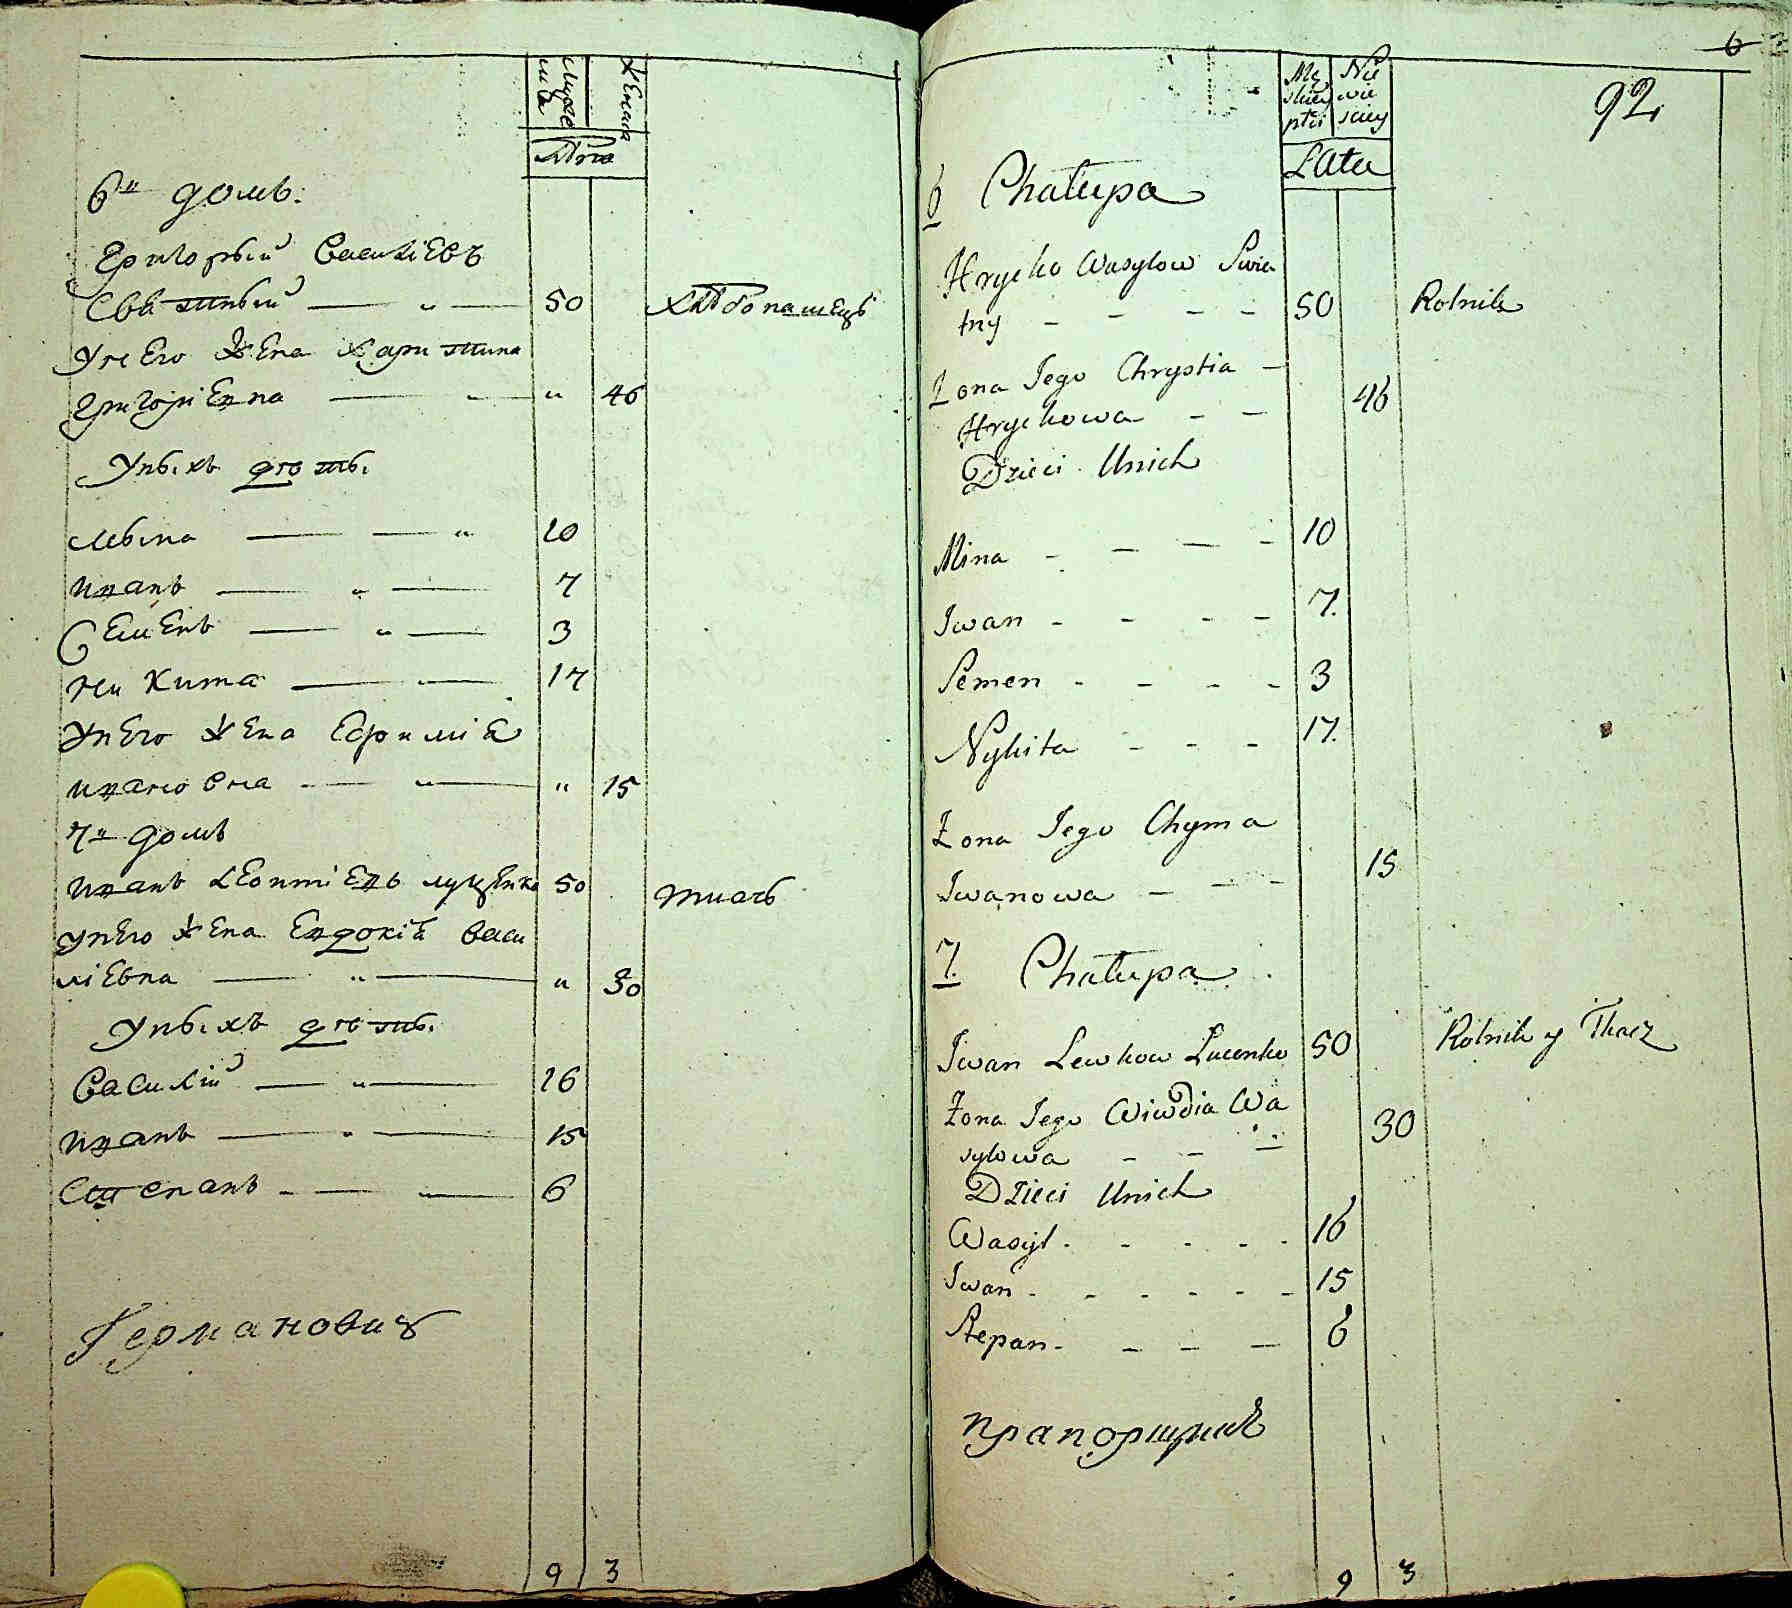 Мужеска
Женска
Лѣта
6й домъ.
Григорый Василіевъ
Святный — " — 50 Хлѣбопашецъ
У него Жена Христина
Григоріевна — " 46
У ныхъ дѣты.
Мына — " 10
Иванъ — " — 7
Семенъ — " — 3
Никита — 17
У него Жена Евфимія
Ивановна — " — " 15
7й домъ
Иванъ Леонтіевъ Луценко 50 ткачь
У него Жена Евдокія Васи
ліевна — " — " 30
У ныхъ дѣты.
Василій — " — 16
Иванъ — " — 15
Степанъ — — 6
Германовичъ
9 3
6
92
Mę
skiey
płci
Nie
wie
sciey
Lata
6 Chałupa
Hrycko Wasylow Swia
tny - - - - 50 Rolnik
Żona Jego Chrystia -
Hryckowa - - 46
Dzieci Unich
Mina - - - - 10
Iwan - - - - 7.
Semen - - - - 3
Nykita - - - 17.
Żona Jego Chyma
Iwanowa - - - 15
7. Chałupa
Iwan Lewkow Łucenko 50 Rolnik y Tkacz
Żona Jego Wiwdia Wa
sylowa - - - 30
Dzieci Unich
Wasyl - - - - - 16
Iwan - - - - - - 15
Stepan - - - - 6
прапорщикъ
9 3